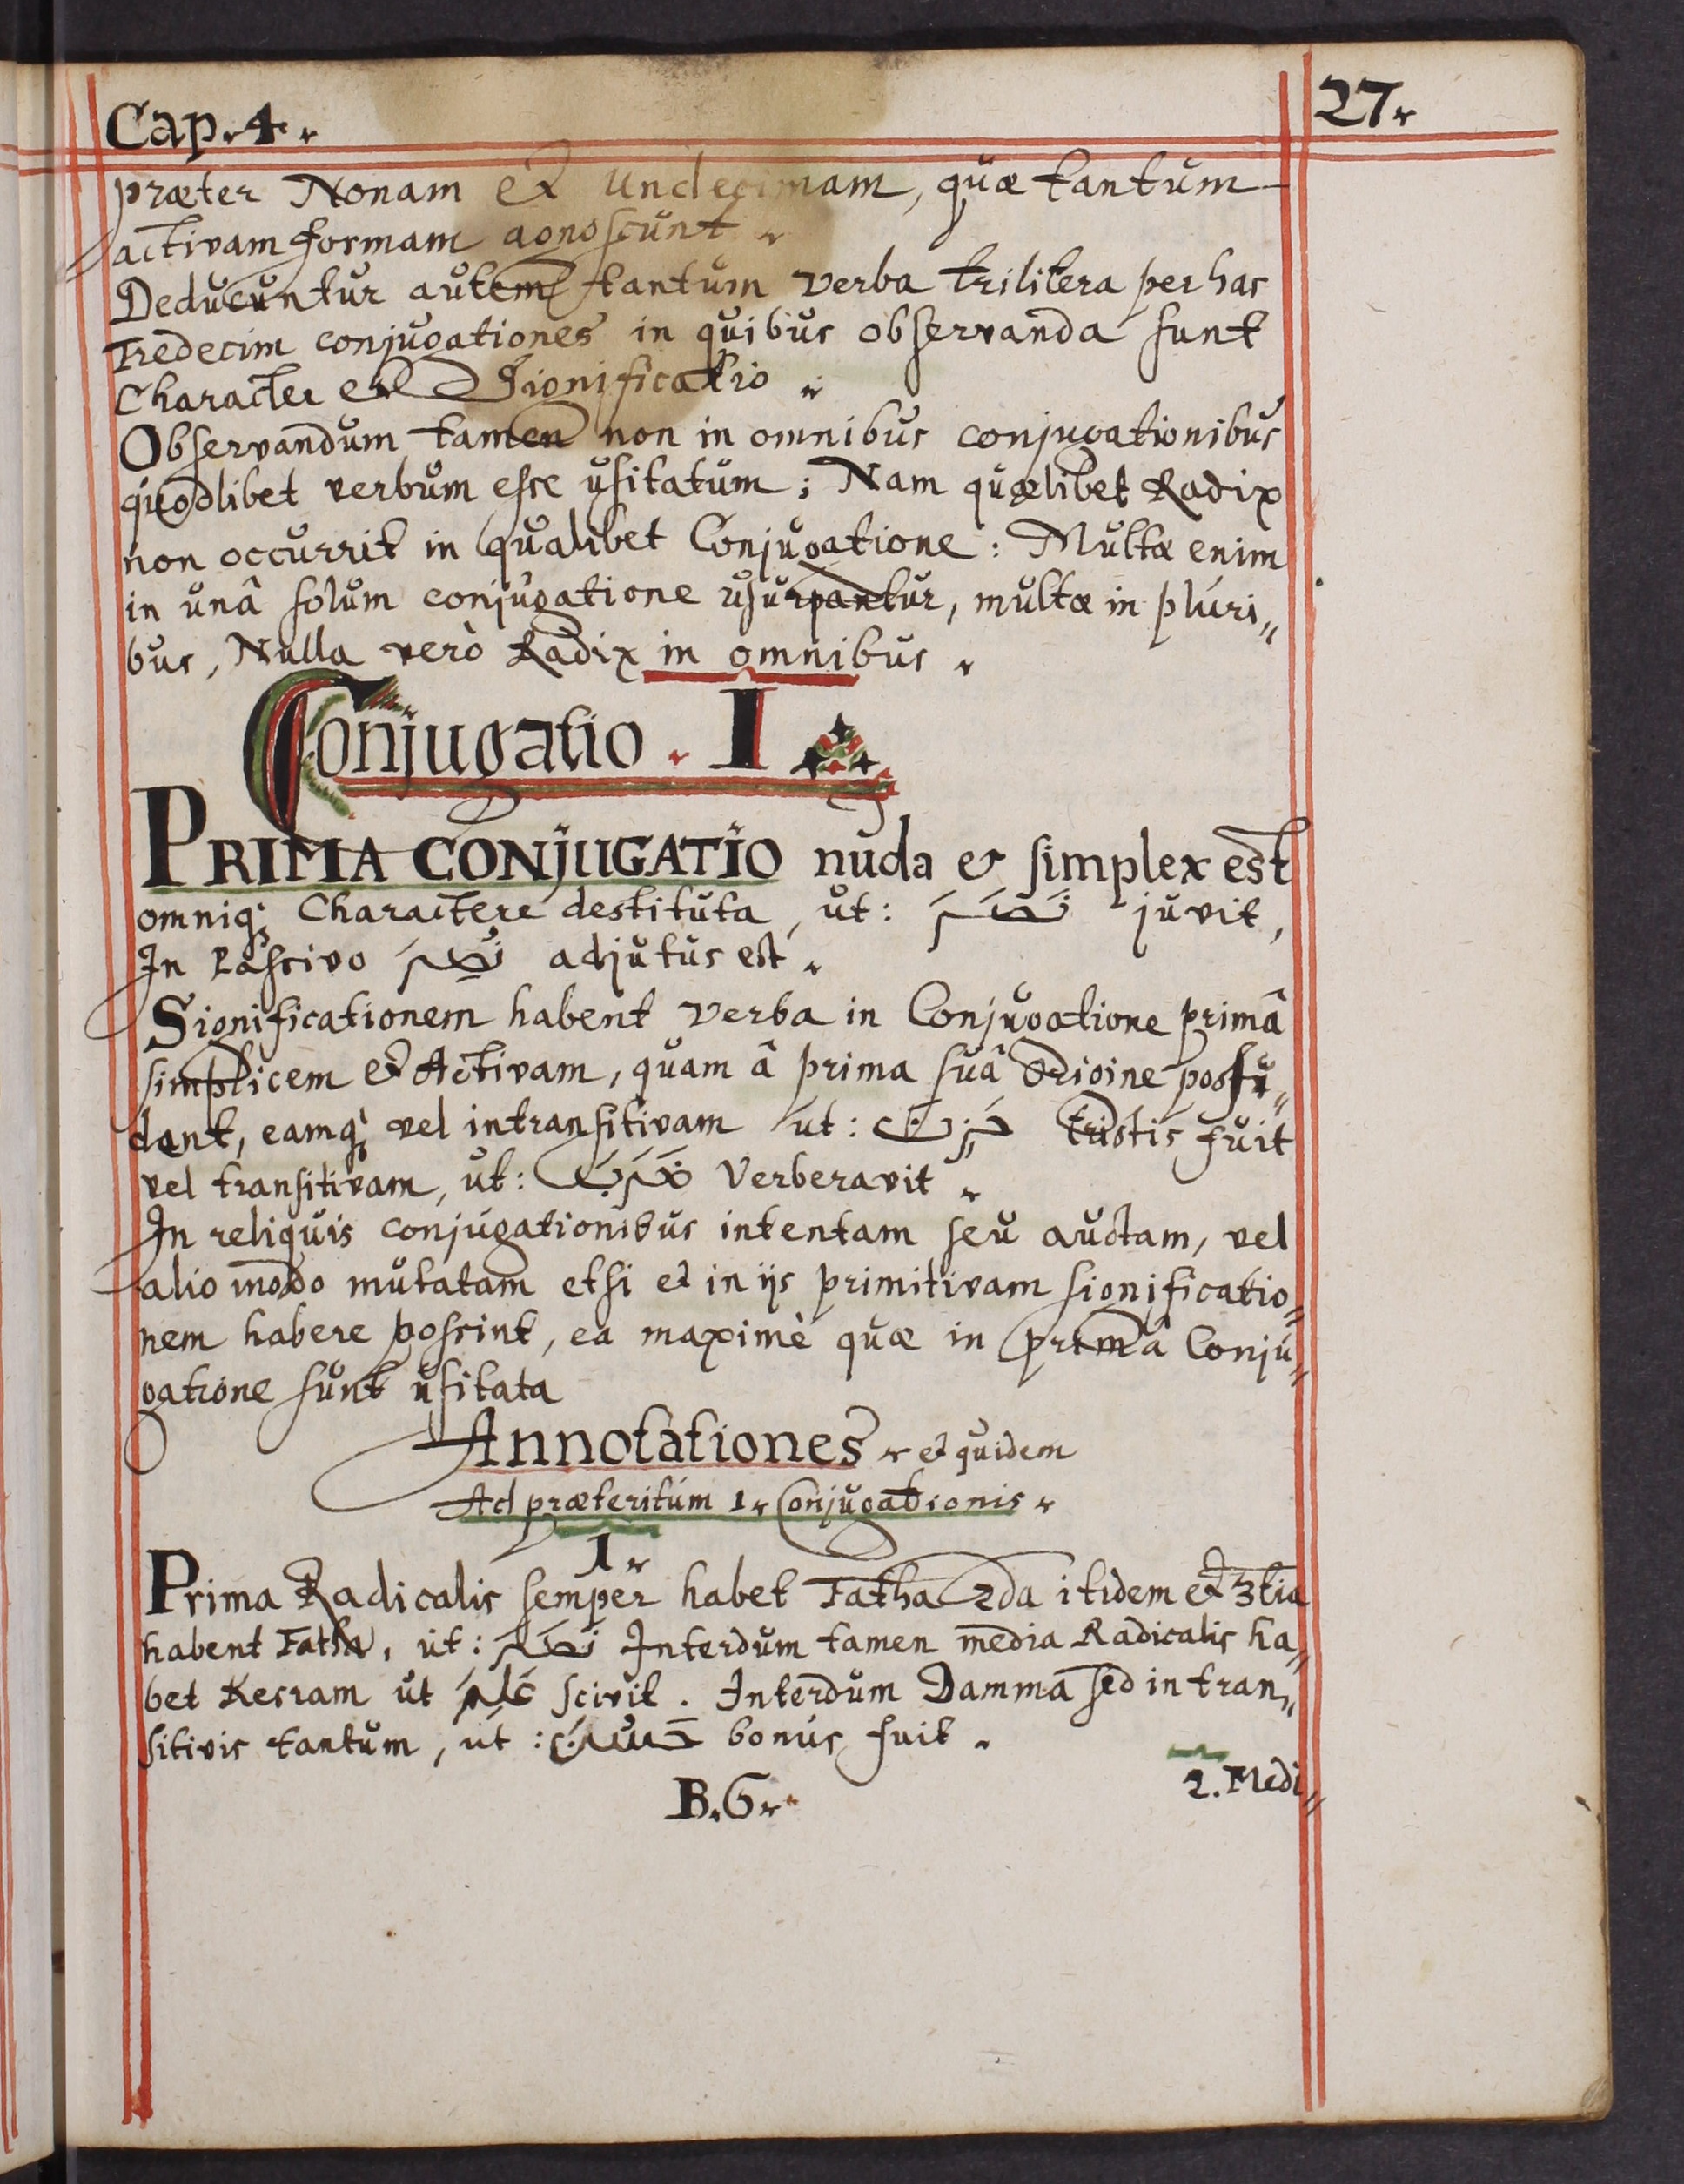 Cap. 4.
27.
præter Nonam et Undecimam, quæ tantum
activam formam agnoscunt.
Deducuntur autem tantum verba trilitera per has
Tredecim conjugationes in quibus observanda sunt
Character et Significatio.
Observandum tamen non in omnibus conjugationibus
quodlibet verbum esse usitatum; Nam quælibet Radix
non occurrit in qualibet Conjugatione: Multæ enim
in unâ solum conjugatione usurpantur, multæ in pluri„
bus, Nulla verò Radix in omnibus.
Conjugatio. I
PRIMA CONJUGATIO nuda et simplex est
omniq; Charactere destituta, ut: نَصَرَ juvit,
In Passivo نُصِرَ adjutus est.
Significationem habent Verba in Conjugatione primâ
simplicem et Activam, quam â prima suâ Origine possi„
dent, eamq; vel intransitivam ut: حَزِنَ tristis fuit
vel transitivam, ut: ضَرَبَ Verberavit.
In reliquis conjugationibus intentam seu auctam, vel
alio modo mutatam etsi et in ijs primitivam significatio„
nem habere possint, ea maximè quæ in primâ Conju„
gatione sunt usitata
Annotationes. et quidem
Ad præteritum 1. Conjugationis.
1.
Prima Radicalis semper habet Fatha 2da itidem et 3tia
habent Fatha, ut: نَصَرَ Interdum tamen media Radicalis ha„
bet Kesram ut عَلِمَ scivit. Interdum Damma sed in tran„
sitivis tantum, ut: حَسُنَ bonus fuit.
B. 6.
2. Medi„